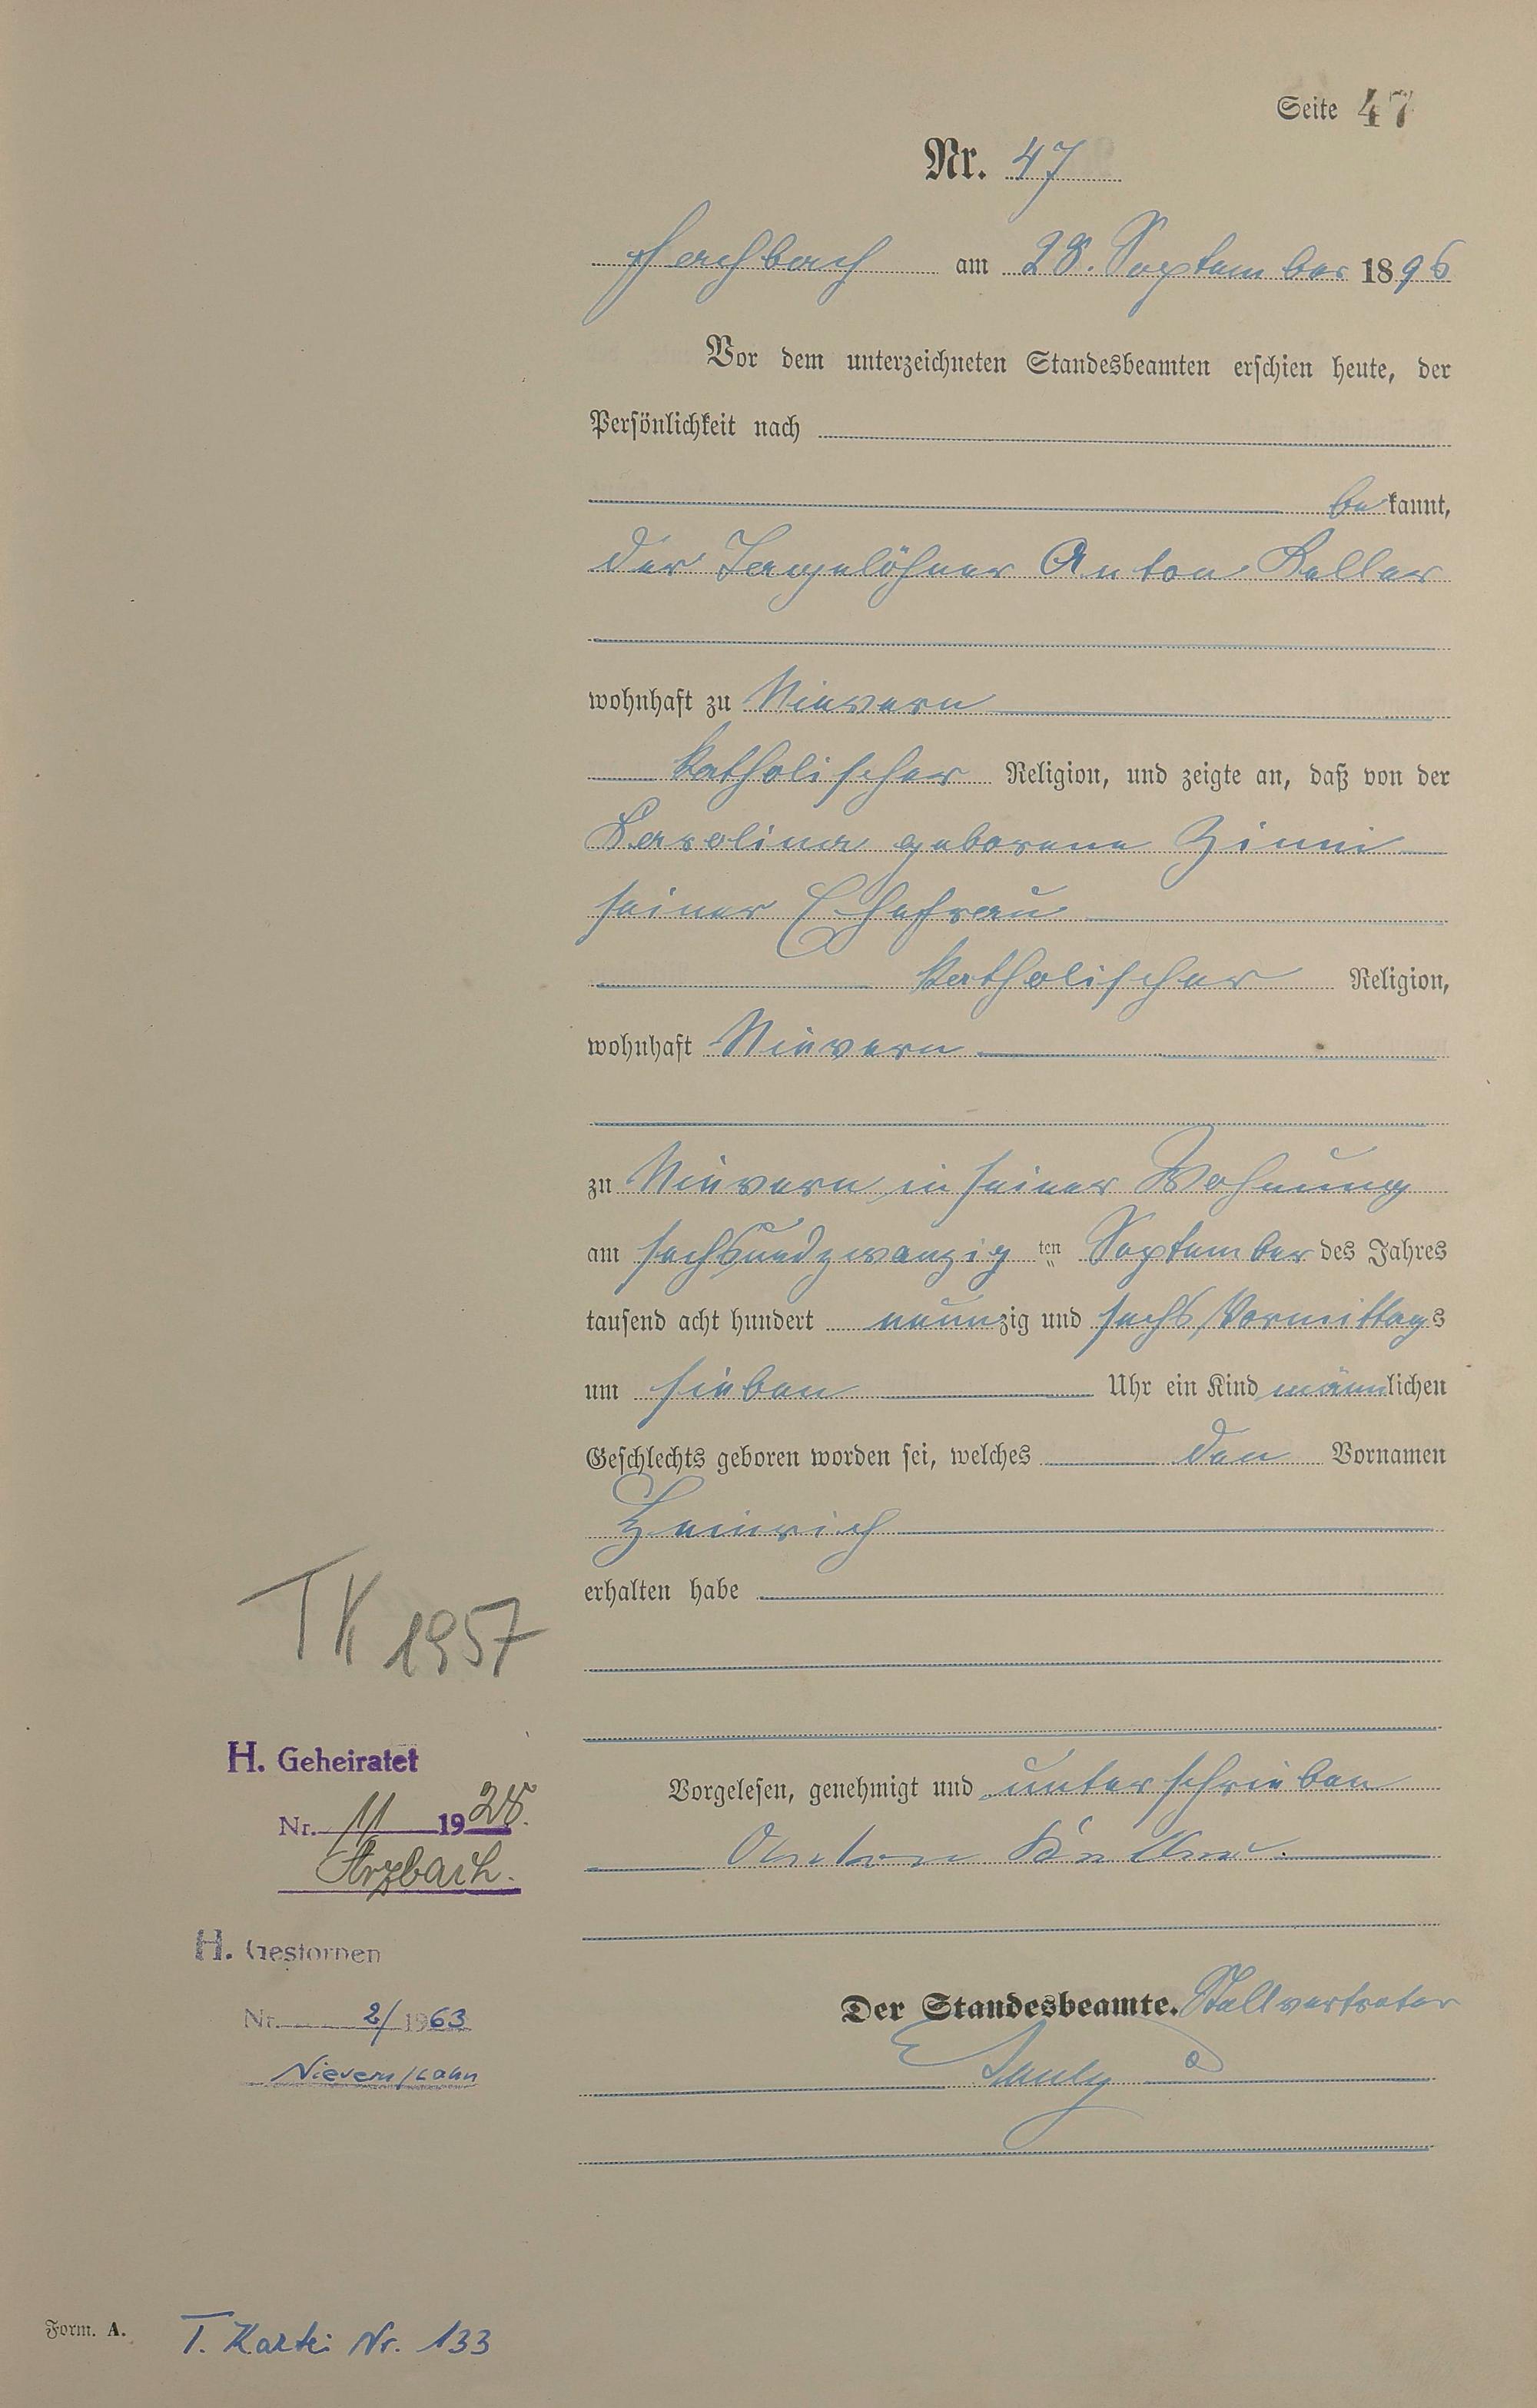 Seite 47
Nr. 47
Fachbach am 28. September 1896
Vor dem unterzeichneten Standesbeamten erschien heute, der
Persönlichkeit nach
bekannt,
der Tagelöhner Anton Keller
wohnhaft zu Nievern
katholischer Religion, und zeigte an, daß von der
Karolina geborene Zinni
seiner Ehefrau
katholischer Religion,
wohnhaft Nievern
zu Nievern in seiner Wohnung
am sechsundzwanzig ten September des Jahres
tausend acht hundert neunzig und sechs Vormittags
um sieben Uhr ein Kind männlichen
Geschlechts geboren worden sei, welches den Vornamen
Heinrich
erhalten habe
TK 1957
H. Geheiratet
Nr. 11 1928.
Arzbach.
Vorgelesen, genehmigt und unterschrieben
Anton Keller.
H. Gestorben
Nr. 2/1963
Nievern/Lahn
Der Standesbeamte. Stellvertreter
Pauly
Form. A. T. Kartei Nr. 133